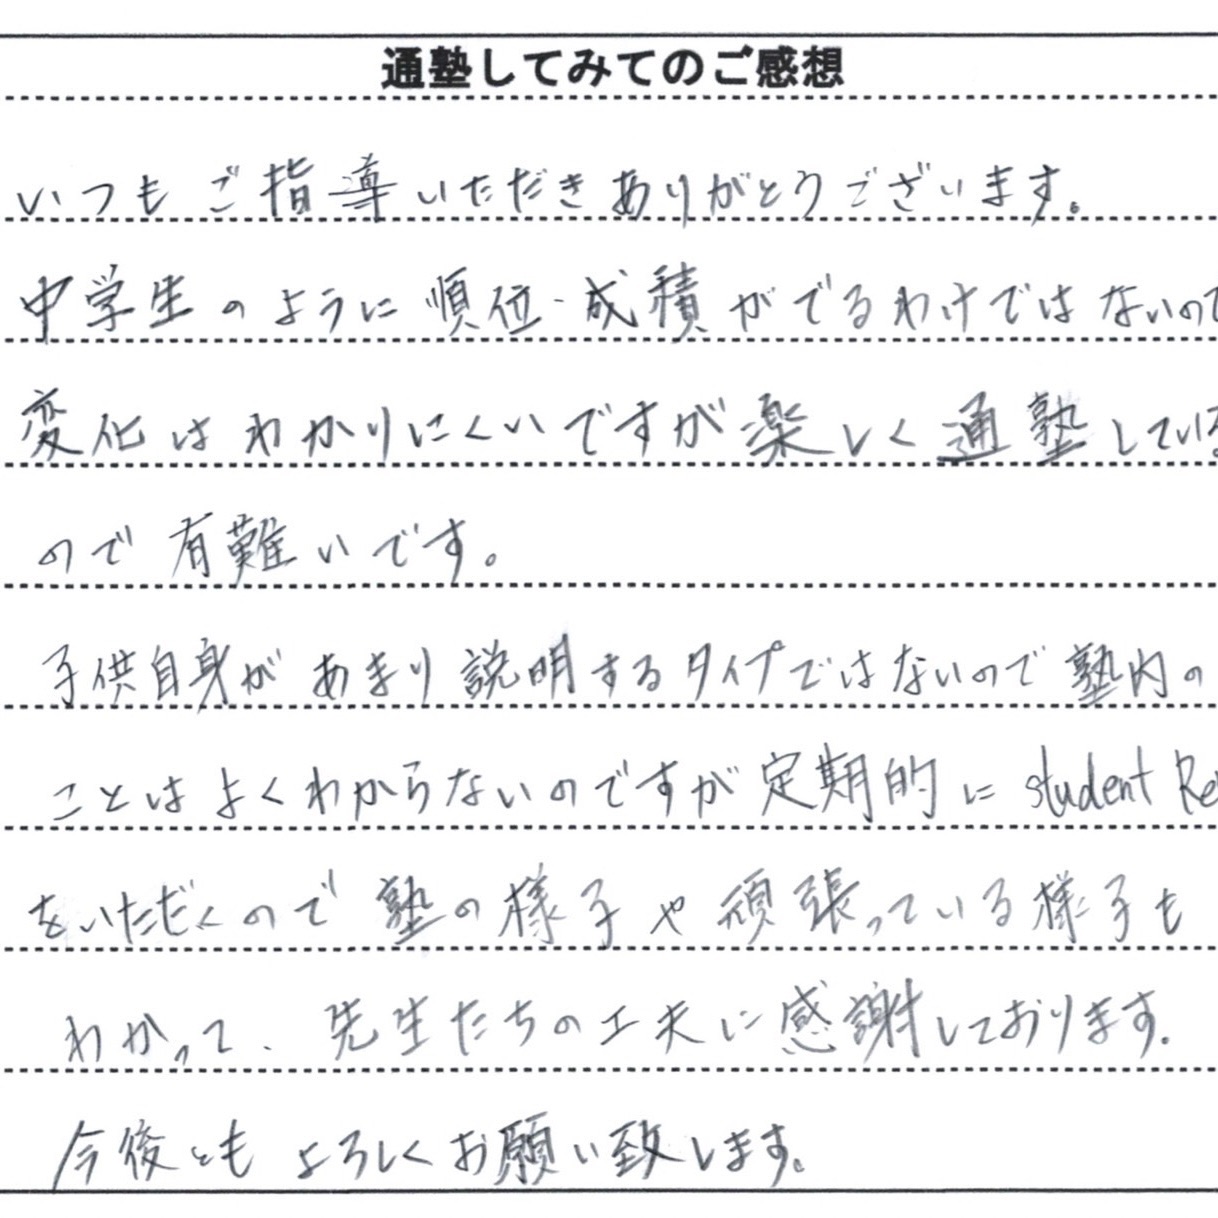 通塾してみてのご感想
いつもご指導いただきありがとうございます。
中学生のように順位・成績がでるわけではないので
変化はわかりにくいですが楽しく通塾している
ので有難いです。
子供自身があまり説明するタイプではないので塾内の
ことはよくわからないのですが定期的に student Re
をいただくので塾の様子や頑張っている様子も
わかって、先生たちの工夫に感謝しております。
今後ともよろしくお願い致します。